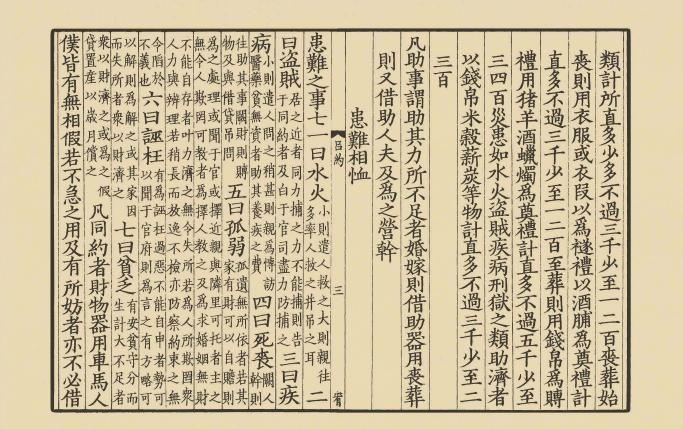 類計所直多少多不過三千少至一二百喪葬始
喪則用衣服或衣段以爲襚禮以酒脯爲奠禮計
直多不過三千少至一二百至葬則用錢帛爲賻
禮用猪羊酒蠟燭爲奠禮計直多不過五千少至
三四百災患如水火盜賊疾病刑獄之類助濟者
以錢帛米穀薪炭等物計直多不過三千少至二
三百
凡助事謂助其力所不足者婚嫁則借助器用喪葬
則又借助人夫及爲之營幹
患難相恤
呂約
三
患難之事七一曰水火小則遣人救之大則親往多率人救之并弔之耳二
曰盜賊居之近者同力捕之力不能捕則告于同約者及白于官司盡力防捕之三曰疾
病小則遣人問之稍甚則親爲博訪醫藥貧無資者助其養疾之費四曰死喪闕人幹則
往助其事闕財則賻物及與借貸弔問五曰孤弱孤遺無所依者若其家有財可以自贍則
爲之處理或聞于官或擇近親與隣里可托者主之無令人欺罔可教者爲擇人教之及爲求婚姻無財
不能自存者叶力濟之無令失所若爲人所欺罔衆人力與辨理若稍長而放逸不檢亦防察約束之無
令陷於不義也六曰誣枉有爲誣枉過惡不能自申者勢可以聞于官府則爲言之有方略可
以解則爲解之或其家因而失所者衆以財濟之七曰貧乏有安貧守分而生計大不足者
衆以財濟之或爲之假貸置產以歲月償之凡同約者財物器用車馬人
僕皆有無相假若不急之用及有所妨者亦不必借